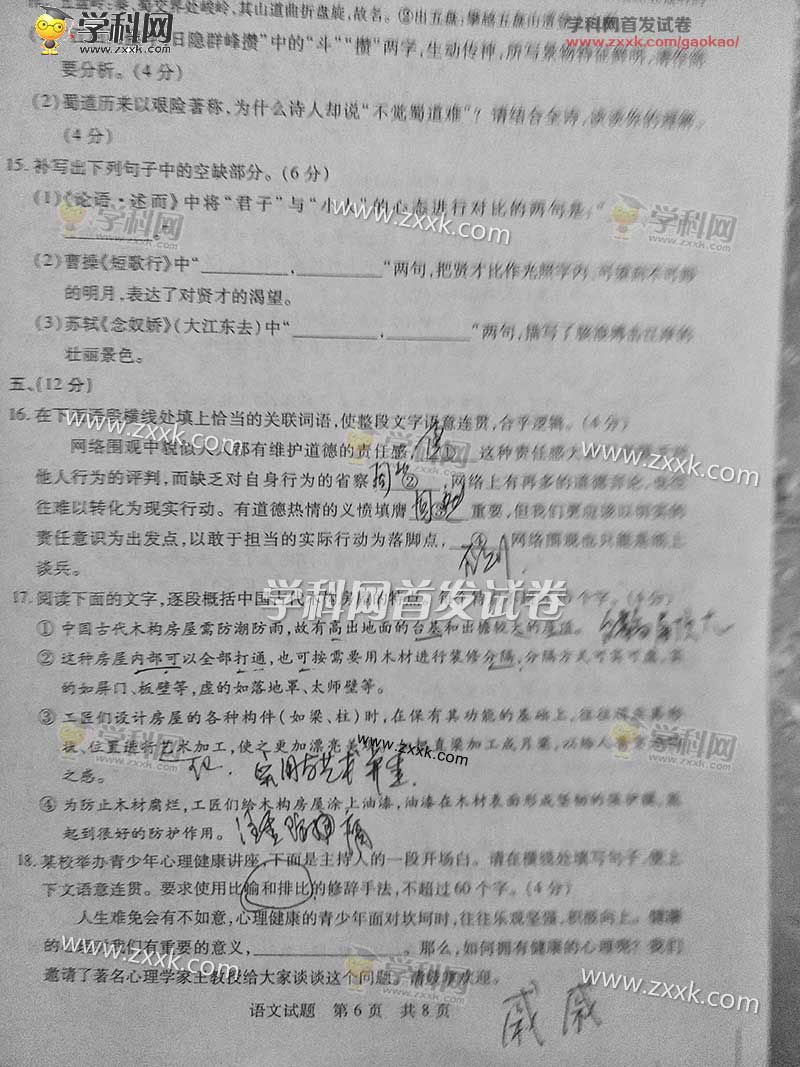 五盘岭:秦、蜀交界处峻岭,其山道曲折盘旋,故名。③出五盘:攀越五盘山
日隐群峰攒”中的“斗”“攒”两字,生动传神,所写景物特征鲜明,请
要分析。(4分)
(2)蜀道历来以艰险著称,为什么诗人却说“不觉蜀道难”?请结合全诗,谈谈你的理解。
(4分)
15.补写出下列句子中的空缺部分。(6分)
(1)《论语·述而》中将“君子”与“小人”的心态进行对比的两句是:“
________。”
(2)曹操《短歌行》中“________,________”两句,把贤才比作光照宇内、
的明月,表达了对贤才的渴望。
(3)苏轼《念奴娇》(大江东去)中“________,________”两句,描写了
壮丽景色。
五、(12分)
16.在下面语段横线处填上恰当的关联词语,使整段文字语意连贯,合乎逻辑。(4分)
网络围观中貌似人人都有维护道德的责任感,①这种责任感大
他人行为的评判,而缺乏对自身行为的省察。②,网络上有再多的道德言论,也往
往难以转化为现实行动。有道德热情的义愤填膺③重要,但我们更应该以切实的
责任意识为出发点,以敢于担当的实际行动为落脚点,④网络围观也只能是纸上
谈兵。
17.阅读下面的文字,逐段概括中国古代木构房屋的特点。
①中国古代木构房屋需防潮防雨,故有高出地面的台基和出檐较大的屋顶。
②这种房屋内部可以全部打通,也可按需要用木材进行装修分隔,分隔方式可实可虚,实
的如屏门、板壁等,虚的如落地罩、太师壁等。
③工匠们设计房屋的各种构件(如梁、柱)时,在保有其功能的基础上,往往
位置进行艺术加工,使之更加漂亮美观。直梁加工成月梁,以给人
之感。
④为防止木材腐烂,工匠们给木构房屋涂上油漆,油漆在木材表面形成坚韧的保护膜,能
起到很好的防护作用。
18.某校举办青少年心理健康讲座,下面是主持人的一段开场白。请在横线处填写句子,使上
下文语意连贯。要求使用比喻和排比的修辞手法,不超过60个字。(4分)
人生难免会有不如意,心理健康的青少年面对坎坷时,往往乐观坚强、积极向上。健康
的心理对我们有重要的意义,________。那么,如何拥有健康的心理呢?我们
邀请了著名心理学家王教授给大家谈谈这个问题。请大家欢迎。
语文试题 第6页 共8页
学科网首发试卷
www.zxxk.com/gaokao/
学科网
www.zxxk.com
学科网首发试卷